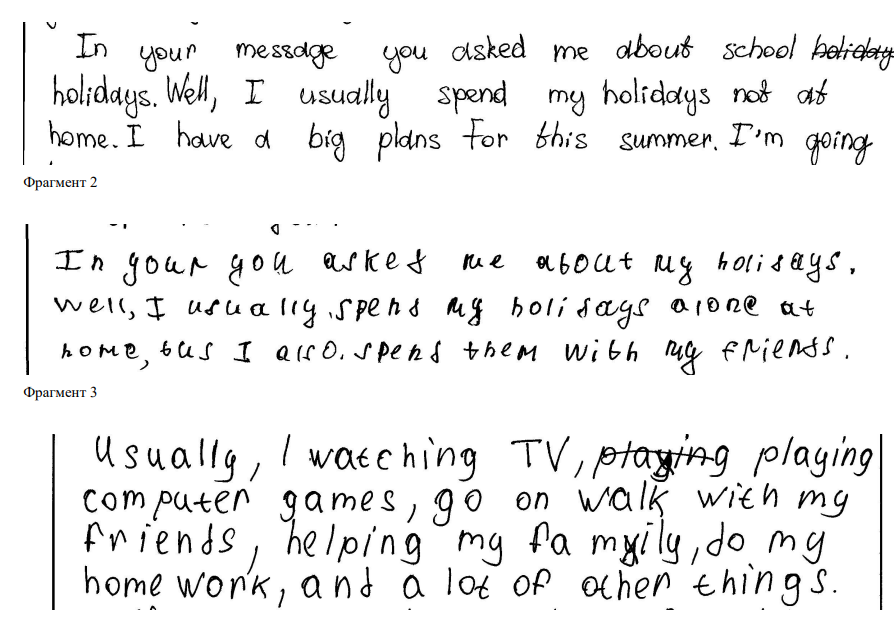 In your message you asked me about school holiday
holidays. Well, I usually spend my holidays not at
home. I have a big plans for this summer. I'm going
Фрагмент 2
In your you asked me about my holidays.
Well, I usually spend my holidays alone at
home, bus I also spend them with my friends.
Фрагмент 3
Usually, I watching TV, playing playing
computer games, go on walk with my
friends, helping my family, do my
home work, and a lot of other things.